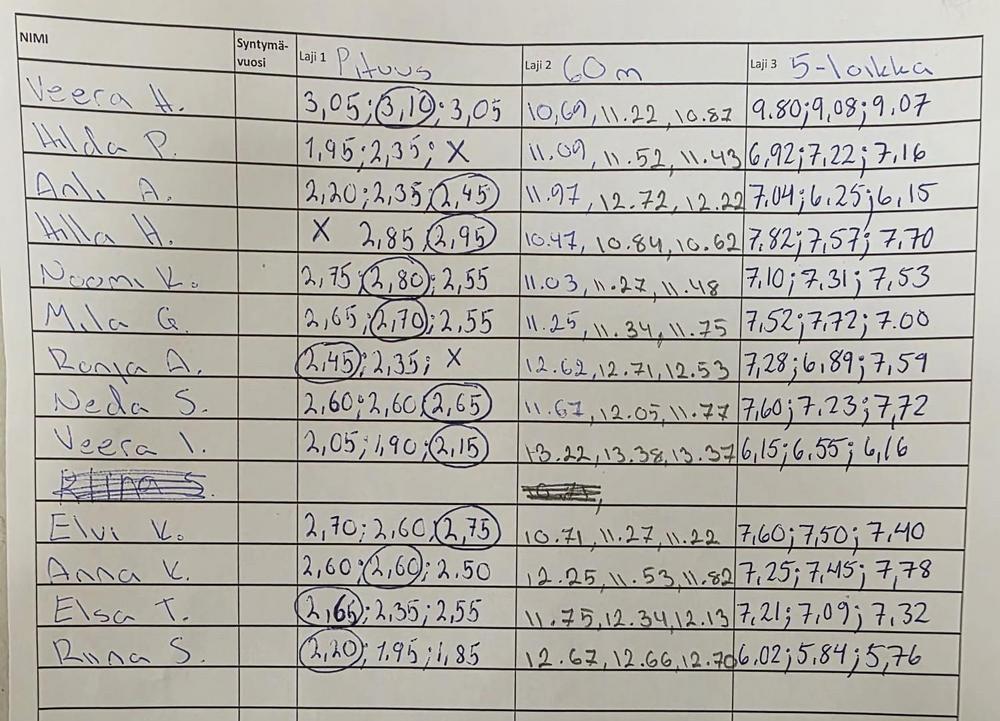 NIMI Syntymä-vuosi Laji 1 Pituus Laji 2 60m Laji 3 5-loikka
Veera H. 3,05; 3,10; 3,05 10,69, 11.22, 10.87 9.80; 9,08; 9,07
Hilda P. 1,95; 2,35; X 11.09, 11.52, 11.43 6,92; 7,22; 7,16
Anli A. 2,20; 2,35; 2,45 11.97, 12.72, 12.22 7,04; 6,25; 6,15
Hilla H. X 2,85; 2,95 10.47, 10.84, 10.62 7,82; 7,57; 7,70
Noomi K. 2,75; 2,80; 2,55 11.03, 11.27, 11.48 7,10; 7,31; 7,53
Mila G. 2,65; 2,70; 2,55 11.25, 11.34, 11.75 7,52; 7,72; 7.00
Ronja A. 2,45; 2,35; X 12.62, 12.71, 12.53 7,28; 6,89; 7,59
Neda S. 2,60; 2,60; 2,65 11.67, 12.05, 11.77 7,60; 7,23; 7,72
Veera I. 2,05; 1,90; 2,15 13.22, 13.38, 13.37 6,15; 6,55; 6,16
Elvi K. 2,70; 2,60; 2,75 10.71, 11.27, 11.22 7,60; 7,50; 7,40
Anna K. 2,60; 2,60; 2.50 12.25, 11.53, 11.82 7,25; 7,45; 7,78
Elsa T. 2,65; 2,35; 2,55 11.75, 12.34, 12.13 7,21; 7,09; 7,32
Riina S. 2,20; 1,95; 1,85 12.67, 12.66, 12.70 6,02; 5,84; 5,76